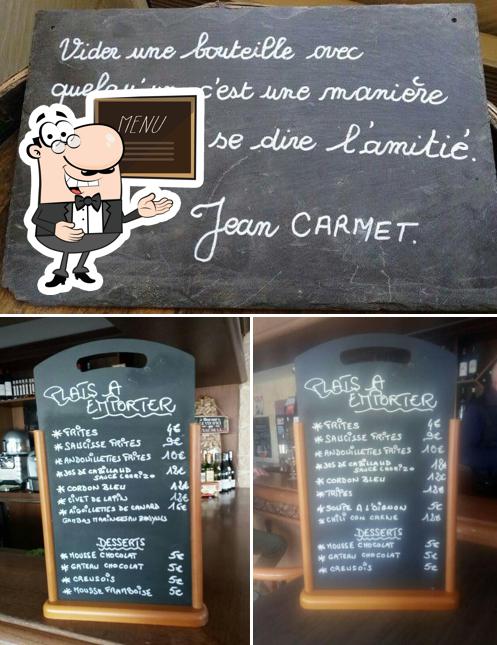 Vider une bouteille avec
c'est une manière
se dire l'amitié.
MENU
Jean CARMET.
PLATS A
EMPORTER
* FRITES 4€
* SAUCISSE FRITES 9€
* ANDOUILLETTES FRITES 10€
* DOS DE CABILLAUD 12€
SAUCE CHORIZO
* CORDON BLEU 12€
* CIVET DE LAPIN 12€
* AIGUILLETTES DE CANARD
DESSERTS
* MOUSSE CHOCOLAT 5€
* GATEAU CHOCOLAT 5€
* CREUSOIS 5€
* MOUSSE FRAMBOISE 5€
PLATS A
EMPORTER
* FRITES 4€
* SAUCISSE FRITES 9€
* ANDOUILLETTES FRITES 10€
* DOS DE CABILLAUD
SAUCE CHORIZO
* CORDON BLEU 12€
* TRIPES 12€
* SOUPE A L'OIGNON 5€
* CHILI CON CARNE 12€
DESSERTS
* MOUSSE CHOCOLAT 5€
* GATEAU CHOCOLAT 5€
* CREUSOIS 5€